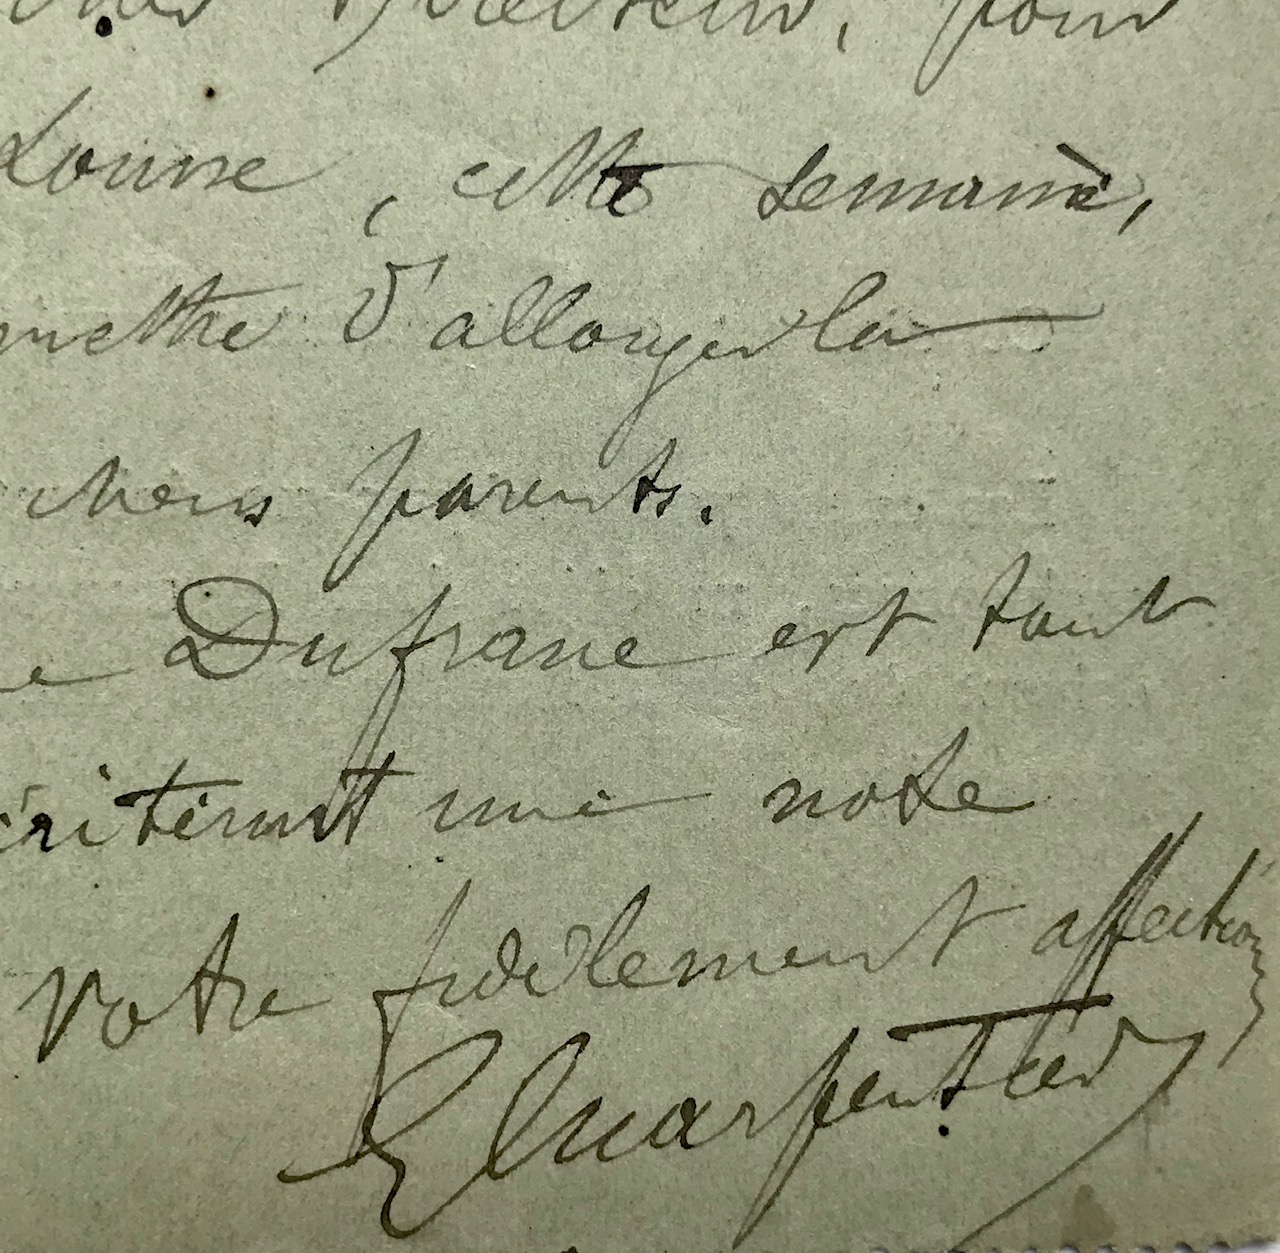 Directeur, pour
Louise, cette semaine,
mettre d'allonger la
chers parents.
e Dufrane est tout
ériterait une note
Votre fidèlement affectionné
GCharpentier